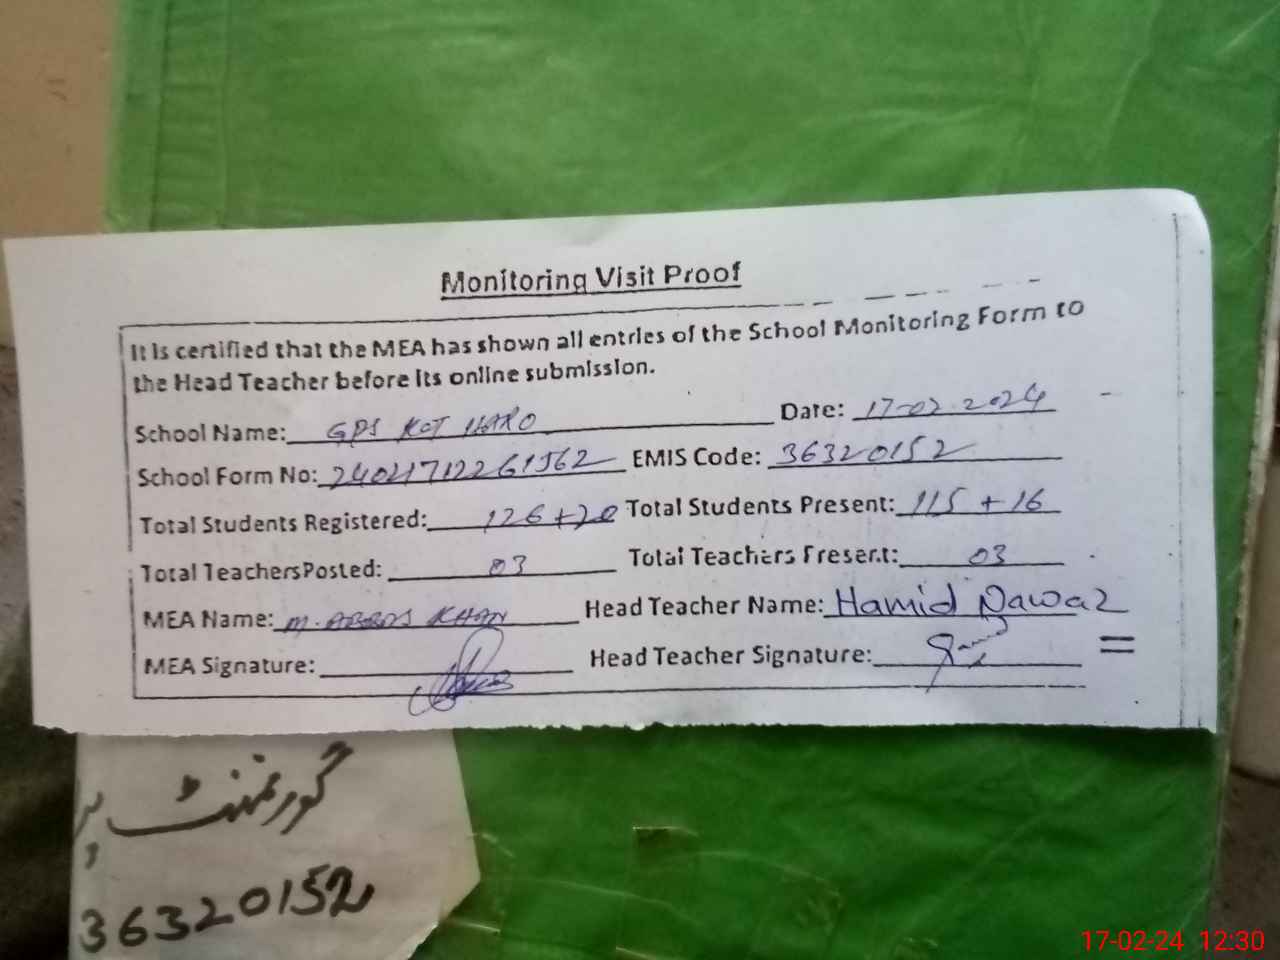 Monitoring Visit Proof
It is certified that the MEA has shown all entries of the School Monitoring Form to
the Head Teacher before its online submission.
School Name: GPS KOT HARO Date: 17-02-2024
School Form No: 24021712261562 EMIS Code: 36320152
Total Students Registered: 126+20 Total Students Present: 115 + 16
Total TeachersPosted: 03 Total Teachers Present: 03
MEA Name: M. ABBAS KHAN Head Teacher Name: Hamid Nawaz
MEA Signature: Head Teacher Signature:
گورنمنٹ
36320152
17-02-24 12:30